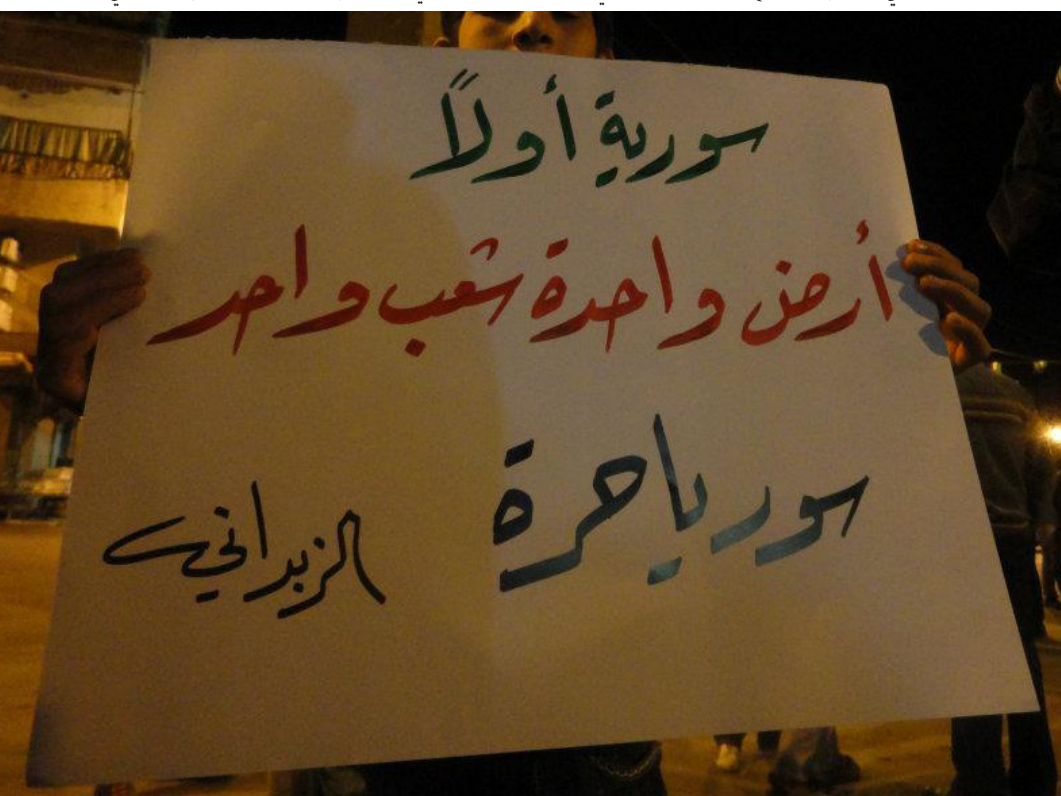 سورية أولاً
أرض واحدة شعب واحد
سوريا حرة
الزبداني